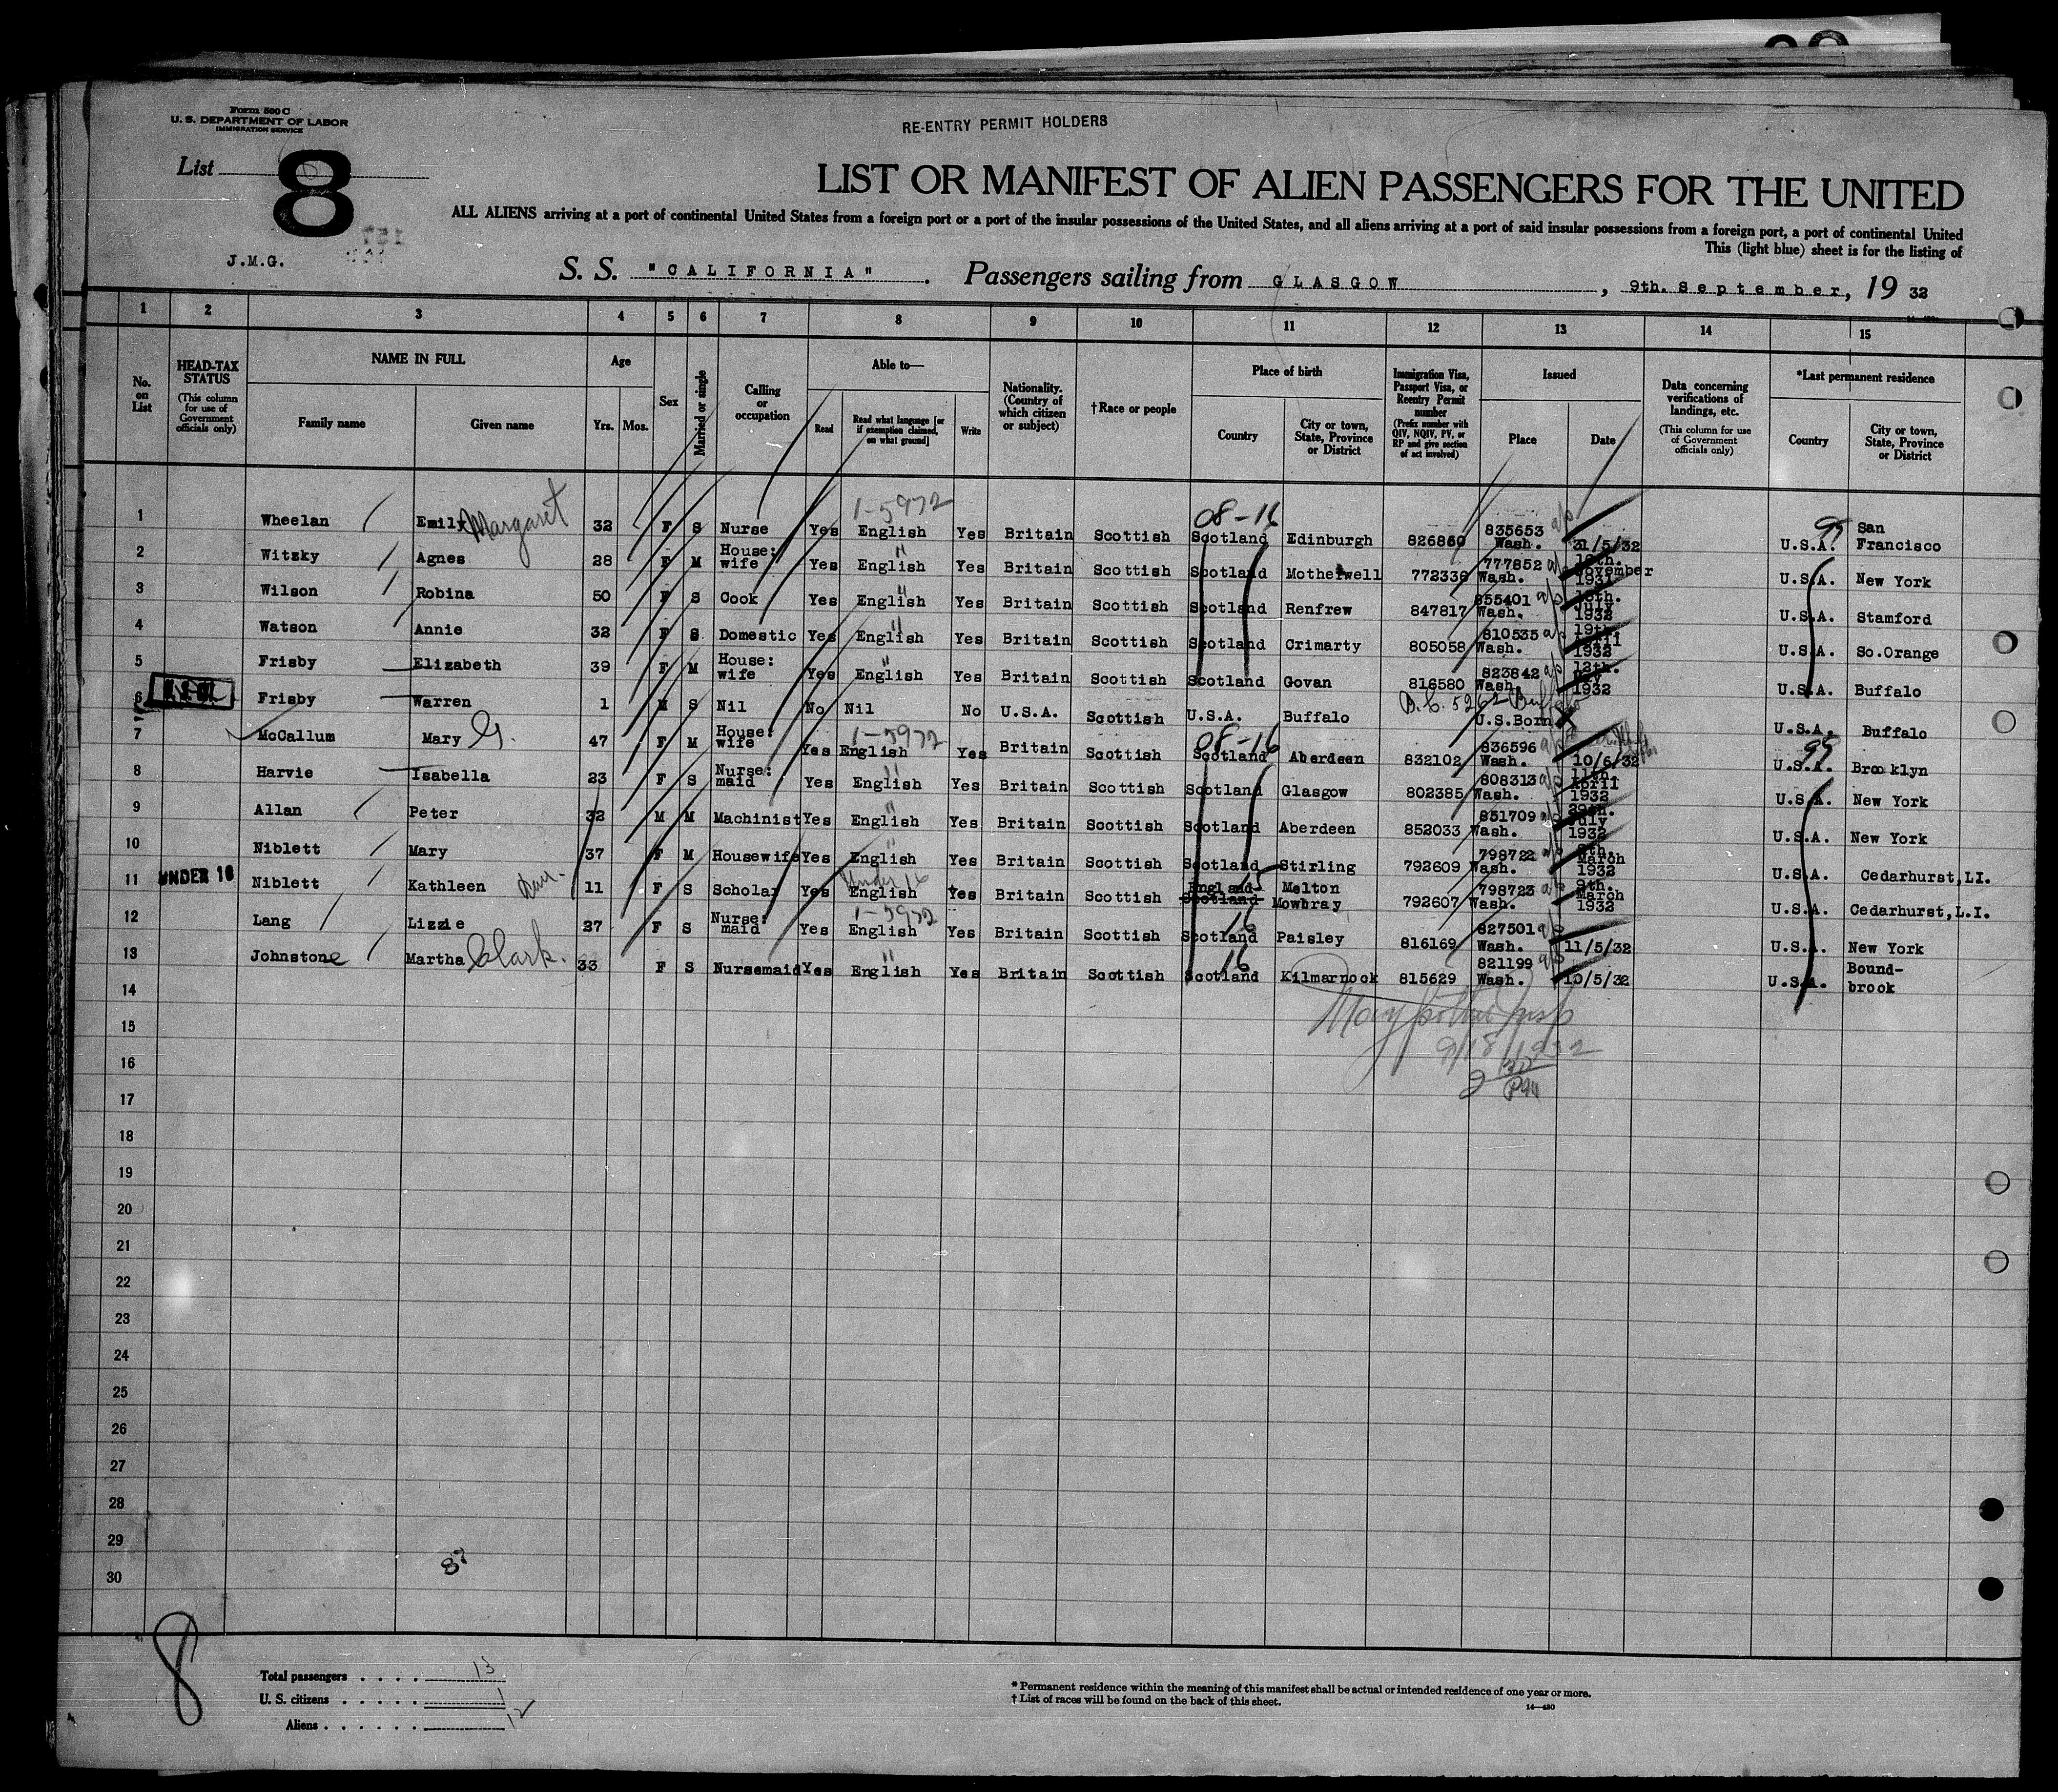 Form 500 C
U. S. DEPARTMENT OF LABOR
IMMIGRATION SERVICE
RE-ENTRY PERMIT HOLDERS
List 8
LIST OR MANIFEST OF ALIEN PASSENGERS FOR THE UNITED
ALL ALIENS arriving at a port of continental United States from a foreign port or a port of the insular possessions of the United States, and all aliens arriving at a port of said insular possessions from a foreign port, a port of continental United
This (light blue) sheet is for the listing of
J.M.G.
S. S. "CALIFORNIA". Passengers sailing from GLASGOW, 9th. September, 19 32
1 2 3 4 5 6 7 8 9 10 11 12 13 14 15
No. on List
HEAD-TAX STATUS (This column for use of Government officials only)
NAME IN FULL Family name Given name
Age Yrs. Mos.
Sex
Married or single
Calling or occupation
Able to— Read Read what language [or if exemption claimed, on what ground] Write
Nationality. (Country of which citizen or subject)
†Race or people
Place of birth Country City or town, State, Province or District
Immigration Visa, Passport Visa, or Reentry Permit number (Prefix number with QIV, NQIV, PV, or RP and give section of act involved)
Issued Place Date
Data concerning verifications of landings, etc. (This column for use of Government officials only)
*Last permanent residence Country City or town, State, Province or District
1 Wheelan Emily Margaret 32 F S Nurse Yes 1-5972 English Yes Britain Scottish 08-16 Scotland Edinburgh 826860 835653 Wash. 31/5/32 99 U.S.A. San Francisco
2 Witzky Agnes 28 F M House: wife Yes English Yes Britain Scottish Scotland Motherwell 772336 777852 Wash. November 1931 U.S.A. New York
3 Wilson Robina 50 F S Cook Yes English Yes Britain Scottish Scotland Renfrew 847817 855401 Wash. July 1932 U.S.A. Stamford
4 Watson Annie 32 F S Domestic Yes English Yes Britain Scottish Scotland Crimarty 805058 810535 Wash. 19th. April 1932 U.S.A. So.Orange
5 Frisby Elizabeth 39 F M House: wife Yes English Yes Britain Scottish Scotland Govan 816580 823842 Wash. 12th. 1932 U.S.A. Buffalo
6 Frisby Warren 1 M S Nil No Nil No U.S.A. Scottish U.S.A. Buffalo B.C. 5262 Buffalo U.S.Born X U.S.A. Buffalo
7 McCallum Mary G. 47 F M House: wife Yes 1-5972 English Yes Britain Scottish 08-16 Scotland Aberdeen 832102 836596 Wash. 10/6/32 99 U.S.A. Brooklyn
8 Harvie Isabella 23 F S Nurse: maid Yes English Yes Britain Scottish Scotland Glasgow 802385 808313 Wash. 11th. April 1932 U.S.A. New York
9 Allan Peter 32 M M Machinist Yes English Yes Britain Scottish Scotland Aberdeen 852033 851709 Wash. 29th. July 1932 U.S.A. New York
10 Niblett Mary 37 F M Housewife Yes English Yes Britain Scottish Scotland Stirling 792609 798722 Wash. 9th. March 1932 U.S.A. Cedarhurst,LI.
UNDER 16
11 Niblett Kathleen 11 F S Scholar Yes Under 16 English Yes Britain Scottish England Scotland Melton Mowbray 792607 798723 Wash. 9th. March 1932 U.S.A. Cedarhurst,L.I.
12 Lang Lizzie 27 F S Nurse: maid Yes 1-5972 English Yes Britain Scottish 16 Scotland Paisley 816169 827501 Wash. 11/5/32 U.S.A. New York
13 Johnstone Martha Clark. 33 F S Nursemaid Yes English Yes Britain Scottish 16 Scotland Kilmarnock 815629 821199 Wash. 10/5/32 U.S.A. Bound-brook
14
15
9/18/1932
16
17
18
19
20
21
22
23
24
25
26
27
28
29
30
87
8
Total passengers . . . . 13
U. S. citizens . . . . . 1
Aliens . . . . . . 12
* Permanent residence within the meaning of this manifest shall be actual or intended residence of one year or more.
† List of races will be found on the back of this sheet.
14—430